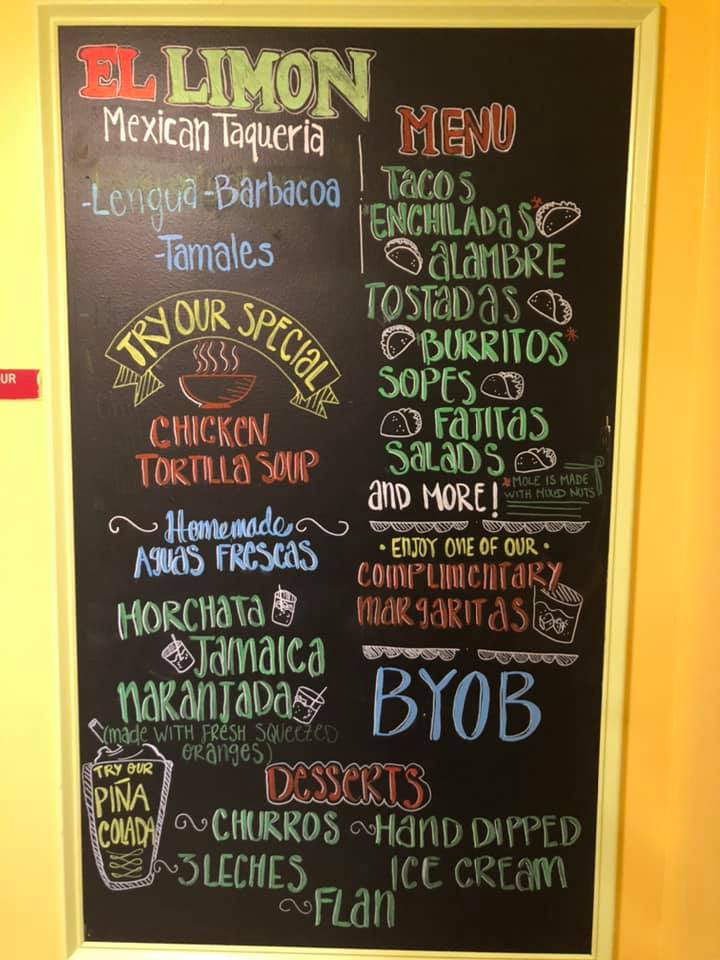 EL LIMON
Mexican Taqueria
-Lengua -Barbacoa
-Tamales
TRY OUR SPECIAL
CHICKEN
TORTILLA SOUP
Homemade
AGUAS FRESCAS
HORCHATA
JAMAICA
NARANJADA
(made WITH FRESH SQUEEZED
ORANGES)
TRY OUR
PIÑA
COLADA
MENU
TACOS
ENCHILADAS*
ALAMBRE
TOSTADAS
BURRITOS*
SOPES
FAJITAS
SALADS
AND MORE!
*MOLE IS MADE
WITH MIXED NUTS
• ENJOY ONE OF OUR •
COMPLIMENTARY
MARGARITAS
BYOB
DESSERTS
~CHURROS ~HAND DIPPED
ICE CREAM
~3 LECHES
~FLAN
UR